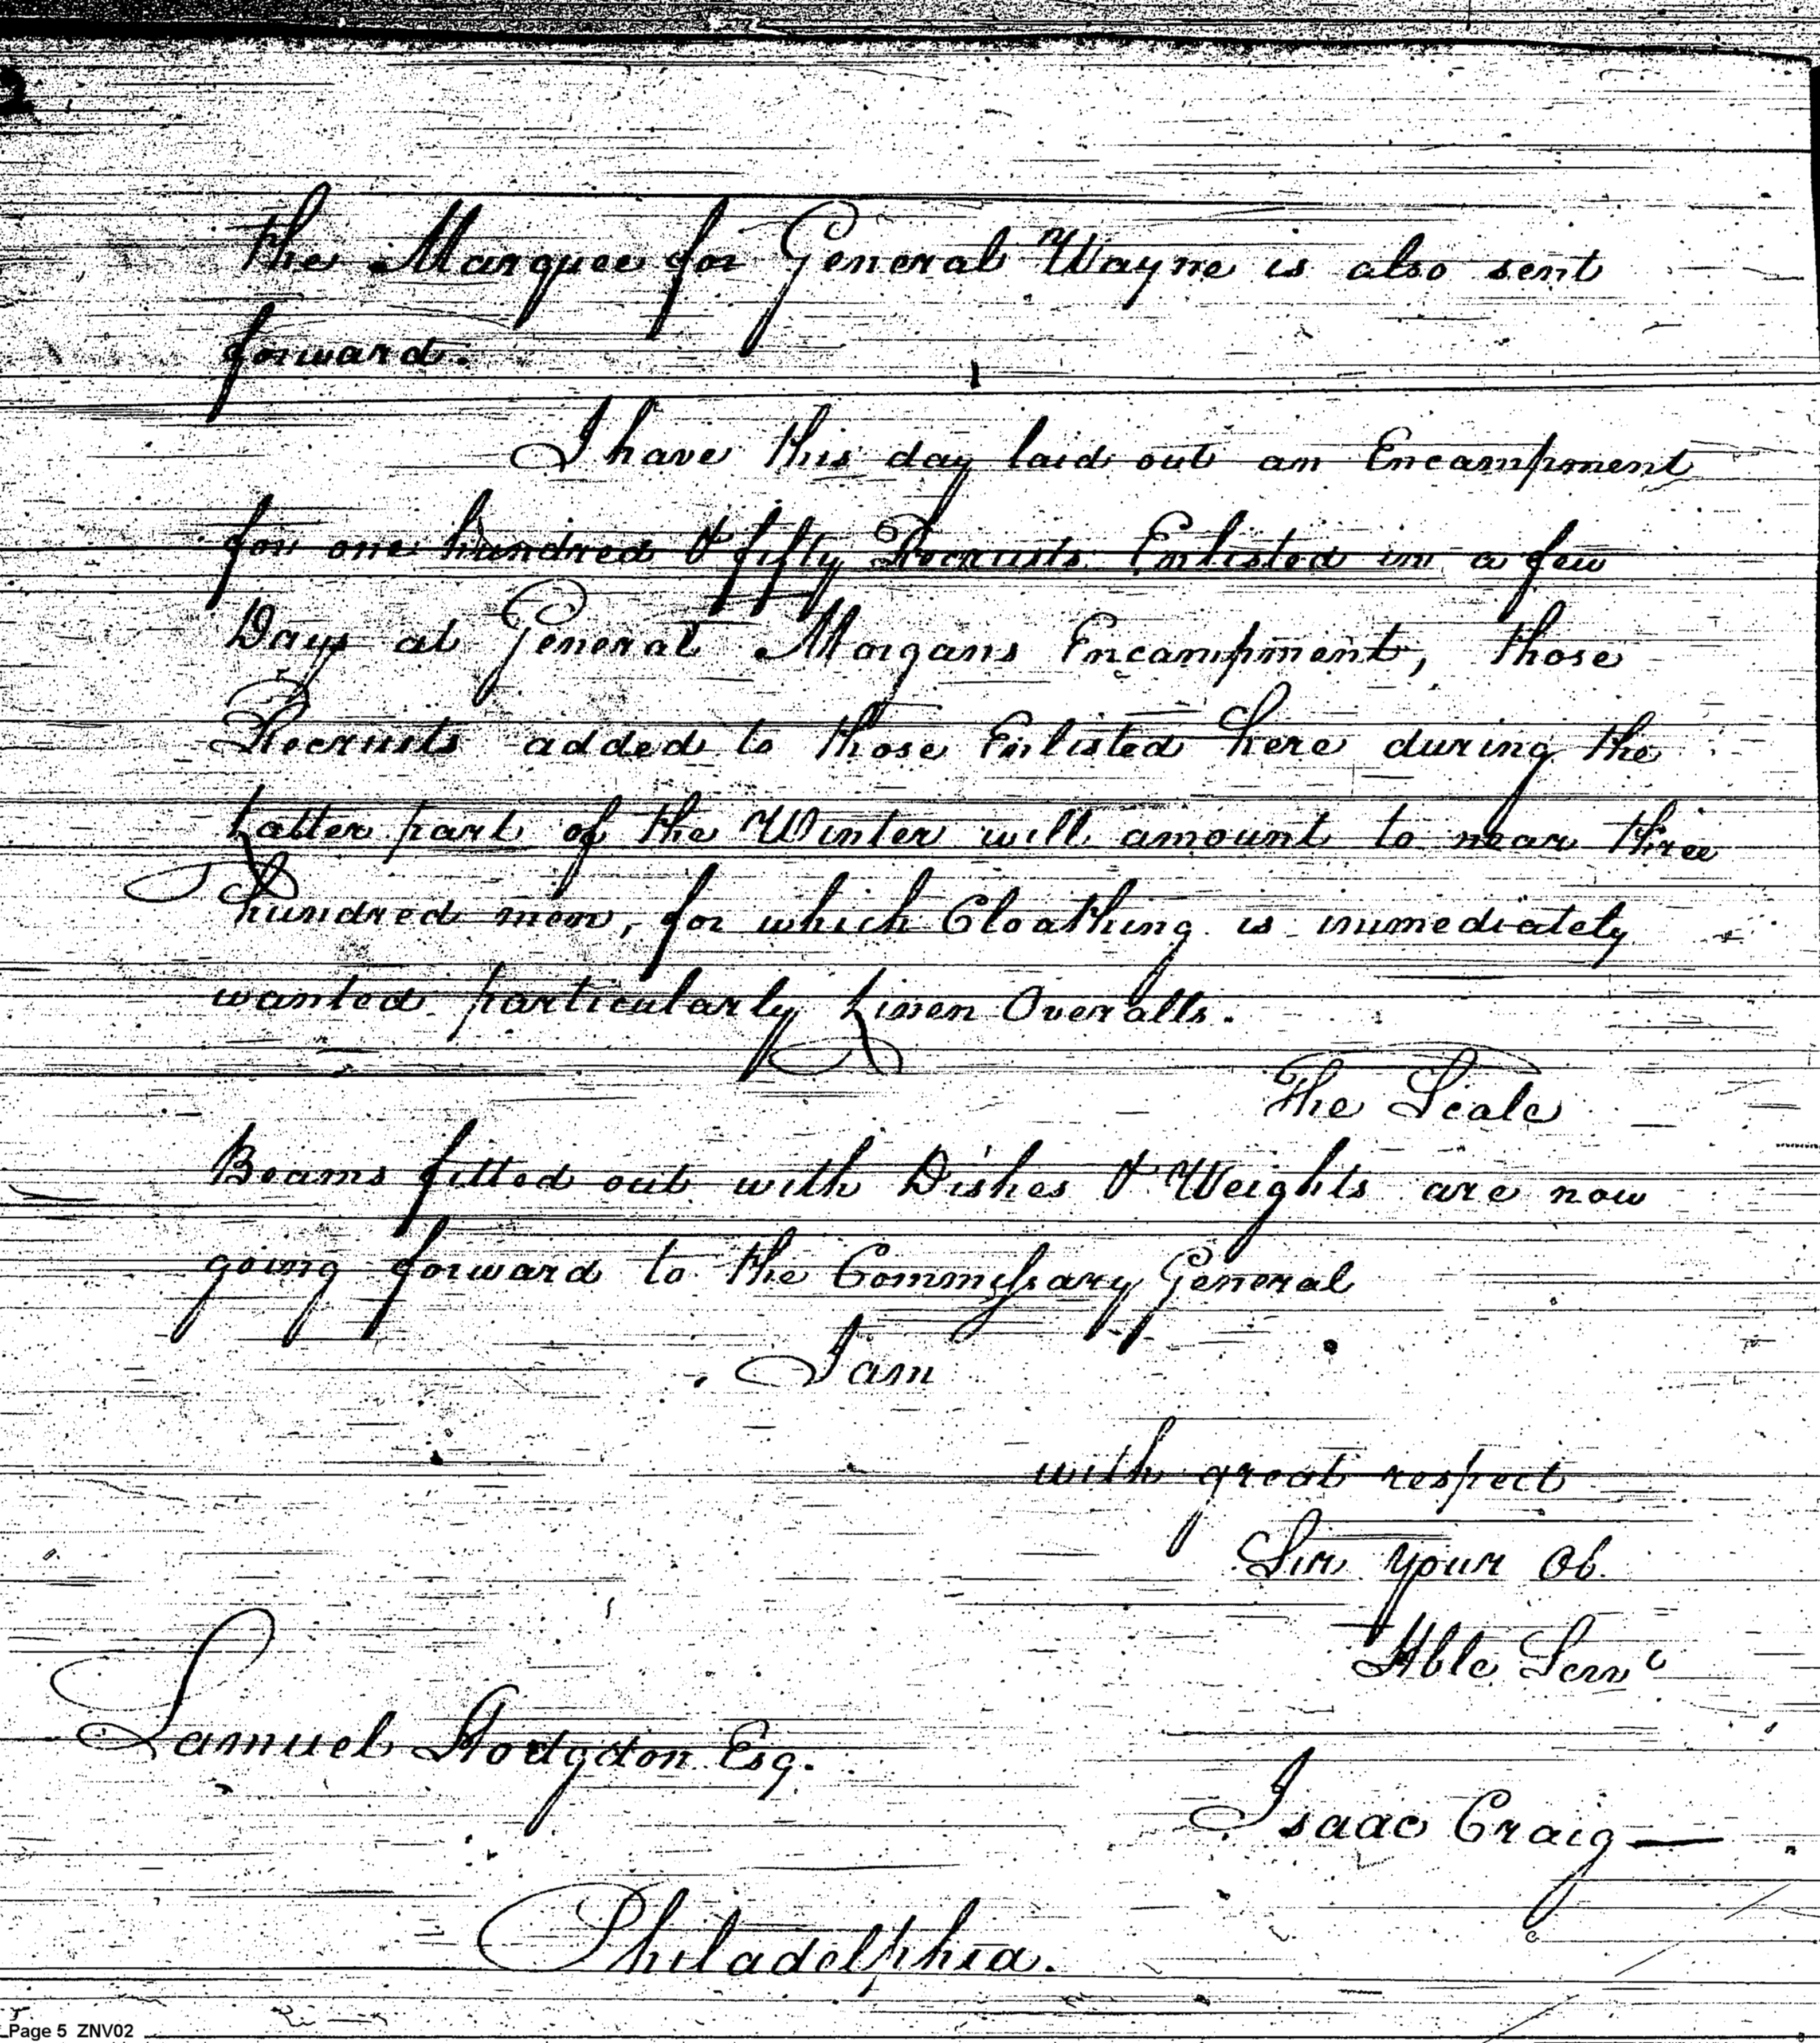 the Marquee for General Wayne is also sent
forward.
I have this day laid out an Encampment
for one hundred & fifty Recruits Enlisted in a few
Days at General Morgans Encampment, those
Recruits added to those Enlisted here during the
Latter part of the Winter will amount to near three
hundred men, for which Cloathing is immediately
wanted particularly Linen Overalls.
The Scale
Beams fitted out with Dishes & Weights are now
going forward to the Commissary General
I am
with great respect
Sir your Ob.
Hble Servt
Samuel Hodgdon Esq.
Isaac Craig
Philadelphia.
Page 5 ZNV02